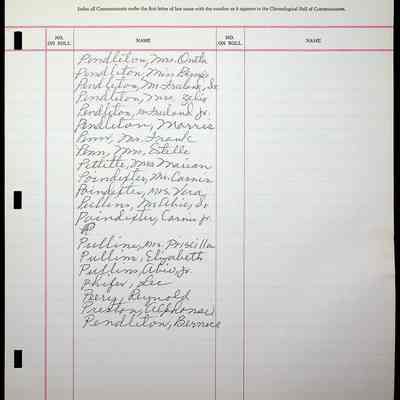 Index all Communicants under the first letter of last name with the number as it appears in the Chronological Roll of Communicants.
NO. ON ROLL NAME NO. ON ROLL NAME
Pendleton, Mrs. Oneta
Pendleton, Miss
Pendleton, Mr. Sr
Pendleton, Mrs. Zelia
Pendleton, Mr. Jr.
Pendleton, Morris
Penn, Mr. Frank
Penn, Mrs. Estelle
Pettitte, Mrs. Marian
Poindexter, Mr. Carnis
Poindexter, Mrs. Vera
Pullins, Mr. Abie, Sr
Poindexter, Carnis Jr.
P
Pullins, Mrs. Priscilla
Pullins, Elizabeth
Pullins, Abie, Jr.
Phifer, Lee
Perry, Reynold
Preston, Alphonso
Pendleton, Bernice